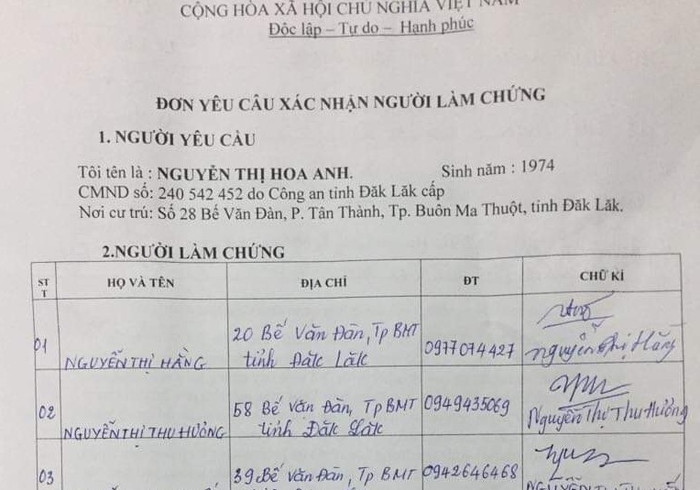 CỘNG HÒA XÃ HỘI CHỦ NGHĨA VIỆT NAM
Độc lập – Tự do – Hạnh phúc
ĐƠN YÊU CẦU XÁC NHẬN NGƯỜI LÀM CHỨNG
1. NGƯỜI YÊU CẦU
Tôi tên là : NGUYỄN THỊ HOA ANH. Sinh năm : 1974
CMND số: 240 542 452 do Công an tỉnh Đăk Lăk cấp
Nơi cư trú: Số 28 Bế Văn Đàn, P. Tân Thành, Tp. Buôn Ma Thuột, tỉnh Đăk Lăk.
2.NGƯỜI LÀM CHỨNG
ST
T
HỌ VÀ TÊN
ĐỊA CHỈ
ĐT
CHỮ KÍ
01
NGUYỄN THỊ HẰNG
20 Bế Văn Đàn, Tp BMT
tỉnh Đăk Lăk
0977074427
Nguyễn Thị Hằng
02
NGUYỄN THỊ THU HƯỞNG
58 Bế Văn Đàn, Tp BMT
tỉnh Đăk Lăk
0949435069
Nguyễn Thị Thu Hưởng
03
39 Bế Văn Đàn, Tp BMT
0942646468